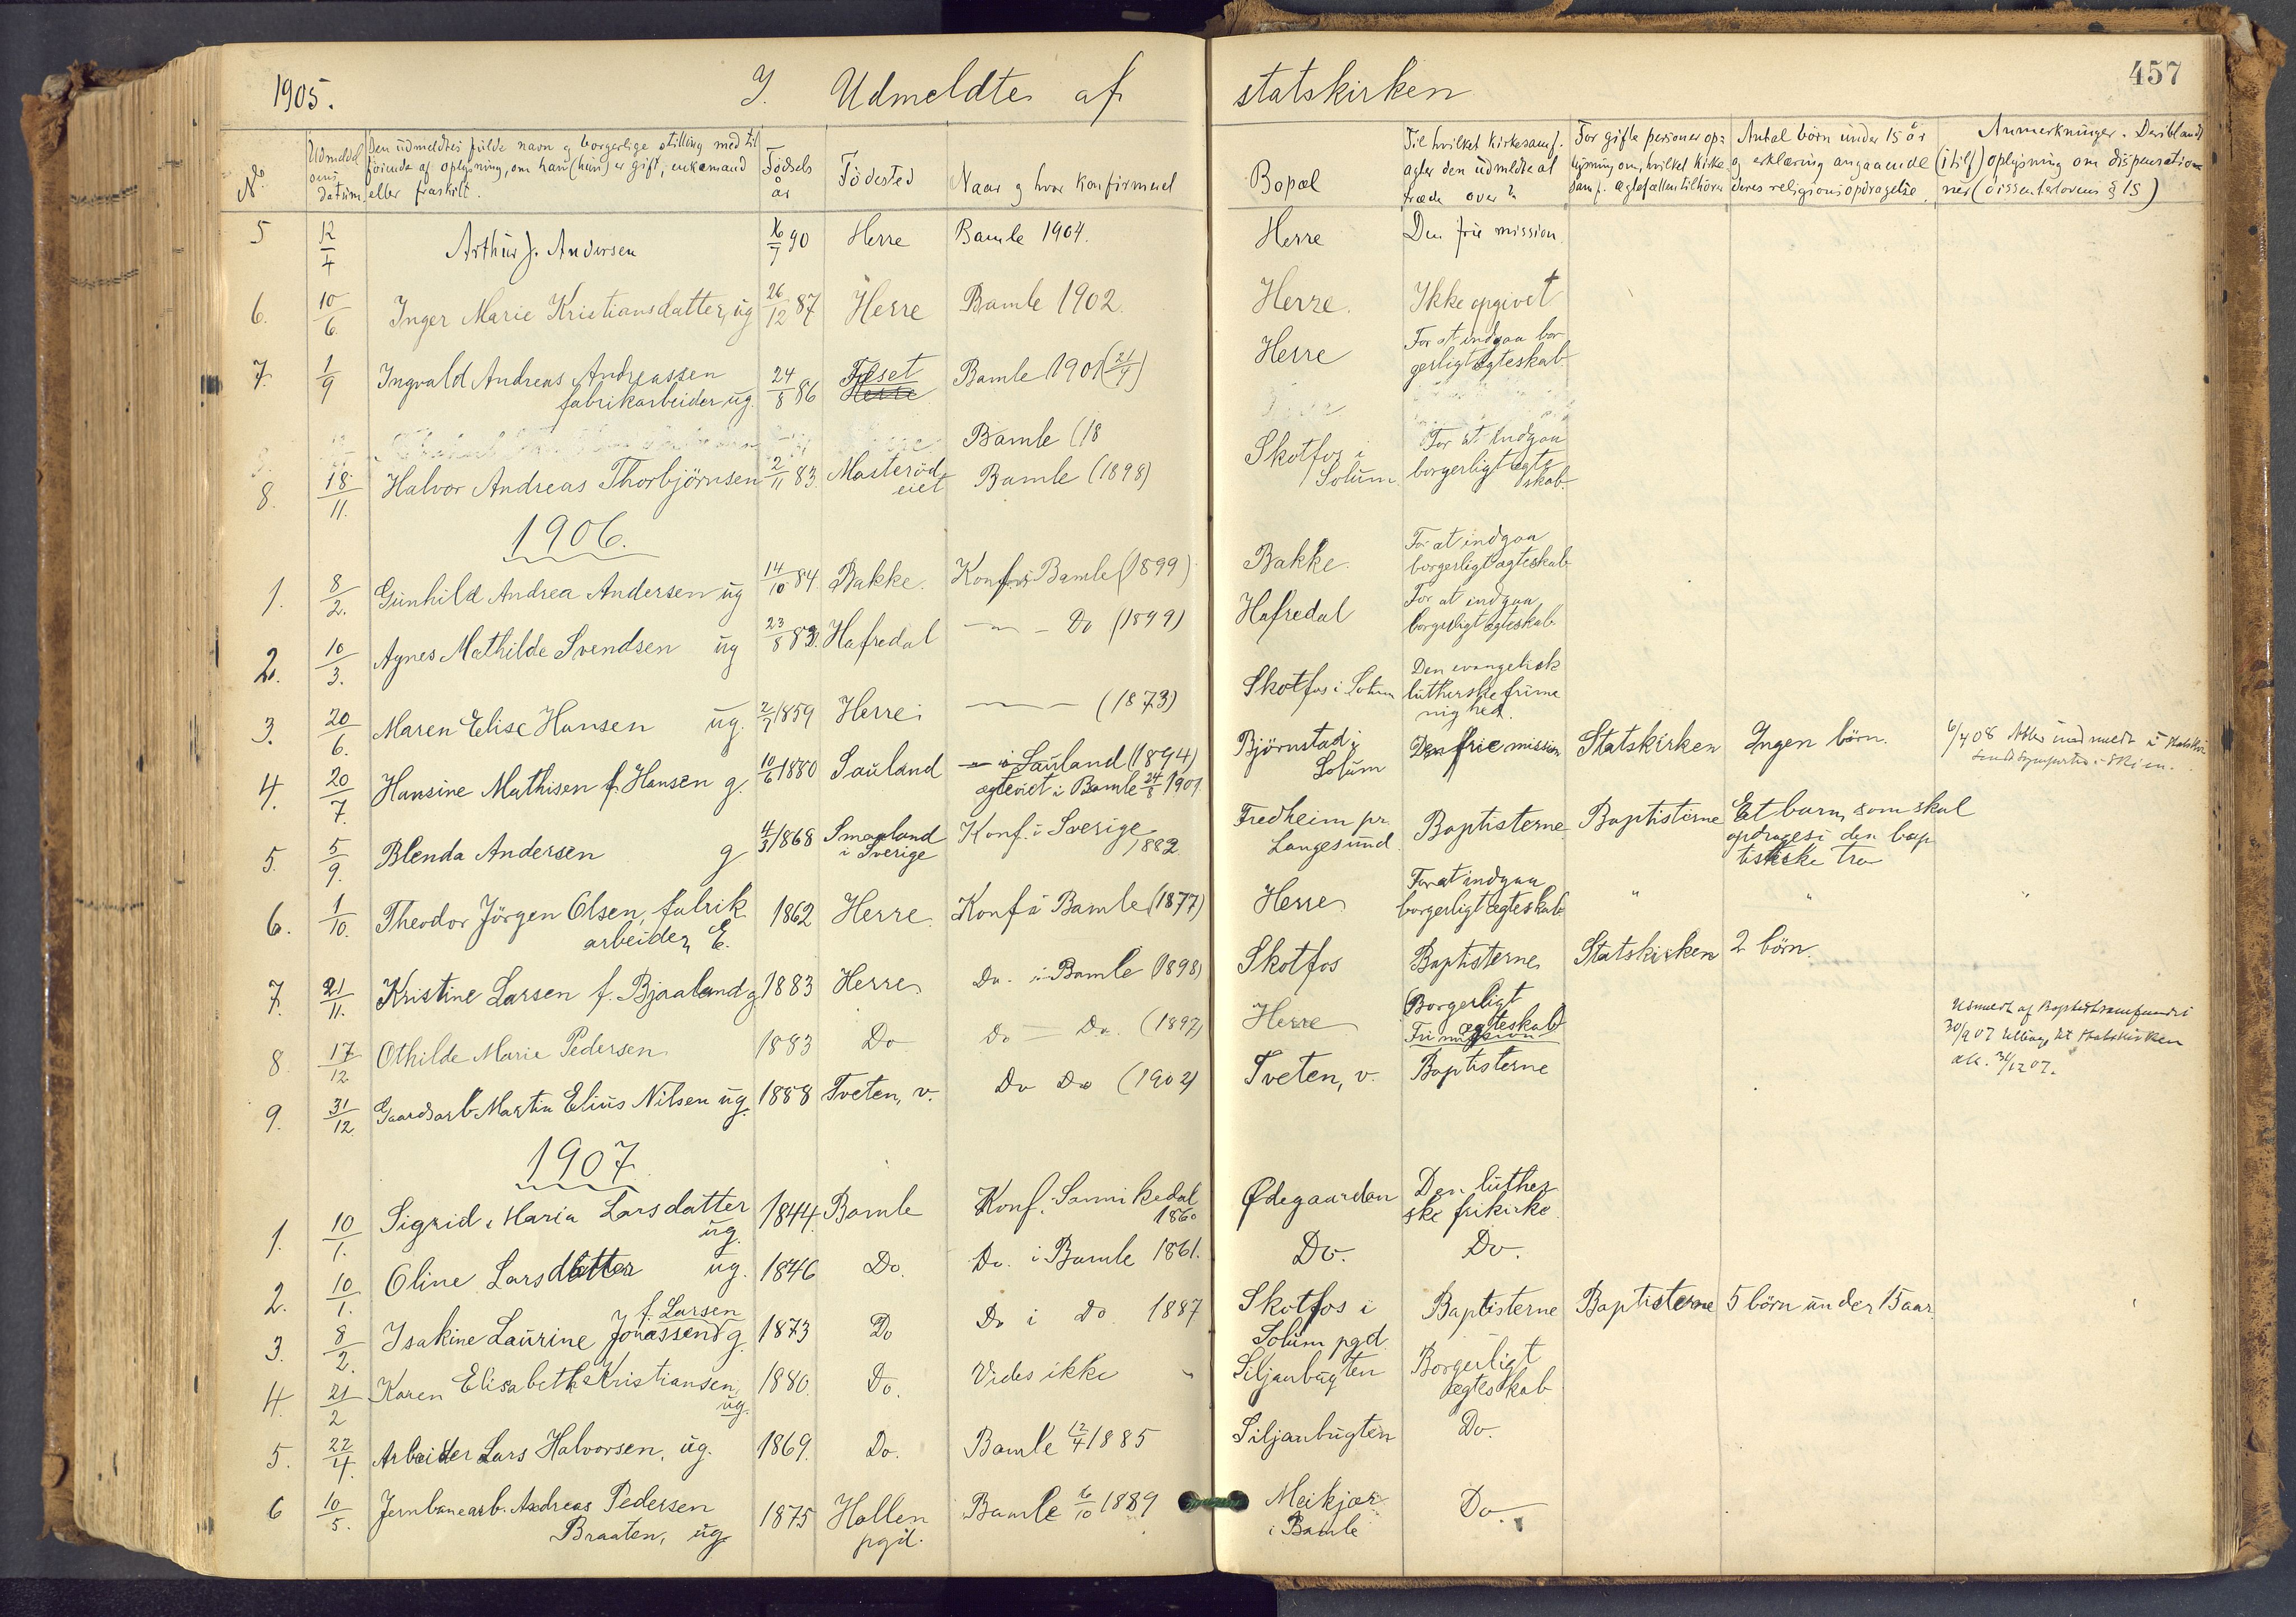 1905. I. Udmeldte af statskirken 457
No. Udmeldelsens datum Den udmeldtes fulde navn og borgerlige stilling med tilföiende af oplysning, om han (hun) er gift, enkemand eller fraskilt. Födsels år Födested Naar og hvor konfirmeret Bopæl Til hvilket kirkesamf. agter den udmeldte at træde over? For gifte personer oplysning om, hvilket kirkesamf. ægtefællen tilhörer Antal börn under 15 år og erklæring angaaende deres religionsopdragelse. Anmerkninger. Deriblandt (i tilf) oplysning om dispensationer (dissenterlovens § 15)
5 12/4 Arthur J. Andersen 16/7 90 Herre Bamle 1904. Herre Den frie mission
6. 10/6. Inger Marie Kristiansdatter, ug 26/12 87 Herre Bamle 1902. Herre. Ikke opgivet
7. 1/9 Ingvald Andreas Andreassen 24/8 86 Bamle 1901 (21/4) Herre For at indgaa bor
fabrikarbeider ug. gerligt ægteskab
Bamle (18
8. 18/11. Halvor Andreas Thorbjörnsen 2/11 83. Masteröd Bamle (1898) Skotfos i For at indgaa
eiet Solum. borgerligt ægte
skab.
1906.
1. 8/2. Gunhild Andrea Andersen ug 14/10 84. Bakke. Konf. i Bamle (1899) Bakke. For at indgaa
borgerligt ægteskab
2. 10/3. Agnes Mathilde Svendsen ug 23/8 83. Hafredal — Do (1899) Hafredal For at indgaa
borgerligt ægteskab
3. 20/6. Maren Elise Hansen ug. 2/7 1859 Herre. — (1873) Skotfos i Solum Den evangelisk
lutherske frime
nighed.
4. 20/7. Hansine Mathisen f. Hansen g. 10/6 1880 Sauland — i Sauland (1894) Björnstad i Den frie mission Statskirken Ingen börn. 6/4 08
ægteviet i Bamle 24/8 1901 Solum
5. 5/9. Blenda Andersen g 4/3 1868 Smaaland Konf. i Sverige Fredheim pr. Baptisterne Baptisterne Et barn, som skal
i Sverige 1882. Langesund. opdrages i den bap
tistiske tro
6. 1/10. Theodor Jörgen Olsen, fabrik 1862 Herre. Konf i Bamle (1877) Herre For at indgaa " " "
arbeider, E. borgerligt ægteskab
7. 21/11. Kristine Larsen f. Bjaaland g 1883 Herre Do. i Bamle (1898) Skotfos Baptisterne Statskirken 2 börn.
8. 17/12 Othilde Marie Pedersen. 1883 Do Do — Do. (1897) Herre Borgerligt
ægteskab
Fri mission
9. 31/12. Gaardsarb. Martin Elius Nilsen ug. 1888 Tveten, v. Do Do (1902) Tveten, v. Baptisterne Udmeldt af Baptistsamfundet
30/9 07 tilbage til Statskirken
31/12 07.
1907.
1. 10/1. Sigrid Maria Larsdatter 1844. Bamle Konf. Sannikedal Ødegaarden Den luther
ug. 1860 ske frikirke.
2. 10/1. Oline Larsdatter ug. 1846 Do. Do. i Bamle 1861. Do. Do.
f. Larsen
3. 8/2. Isakine Laurine Jonassen g. 1873 Do Do i do. 1887 Skotfos i Baptisterne Baptisterne 5 börn under 15 aar.
Solum pgd.
4. 21/2 Karen Elisabeth Kristiansen, 1880. Do. Vides ikke Siljanbugten Borgerligt
ug. ægteskab
5. 22/4. Arbeider Lars Halvorsen, ug. 1869. Do. Bamle 12/4 1885 Siljanbugten Do.
6 10/5. Jernbanearb. Andreas Pedersen 1875 Hollen Bamle 6/10 1889 Meikjær Do.
Braaten, ug pgd. i Bamle